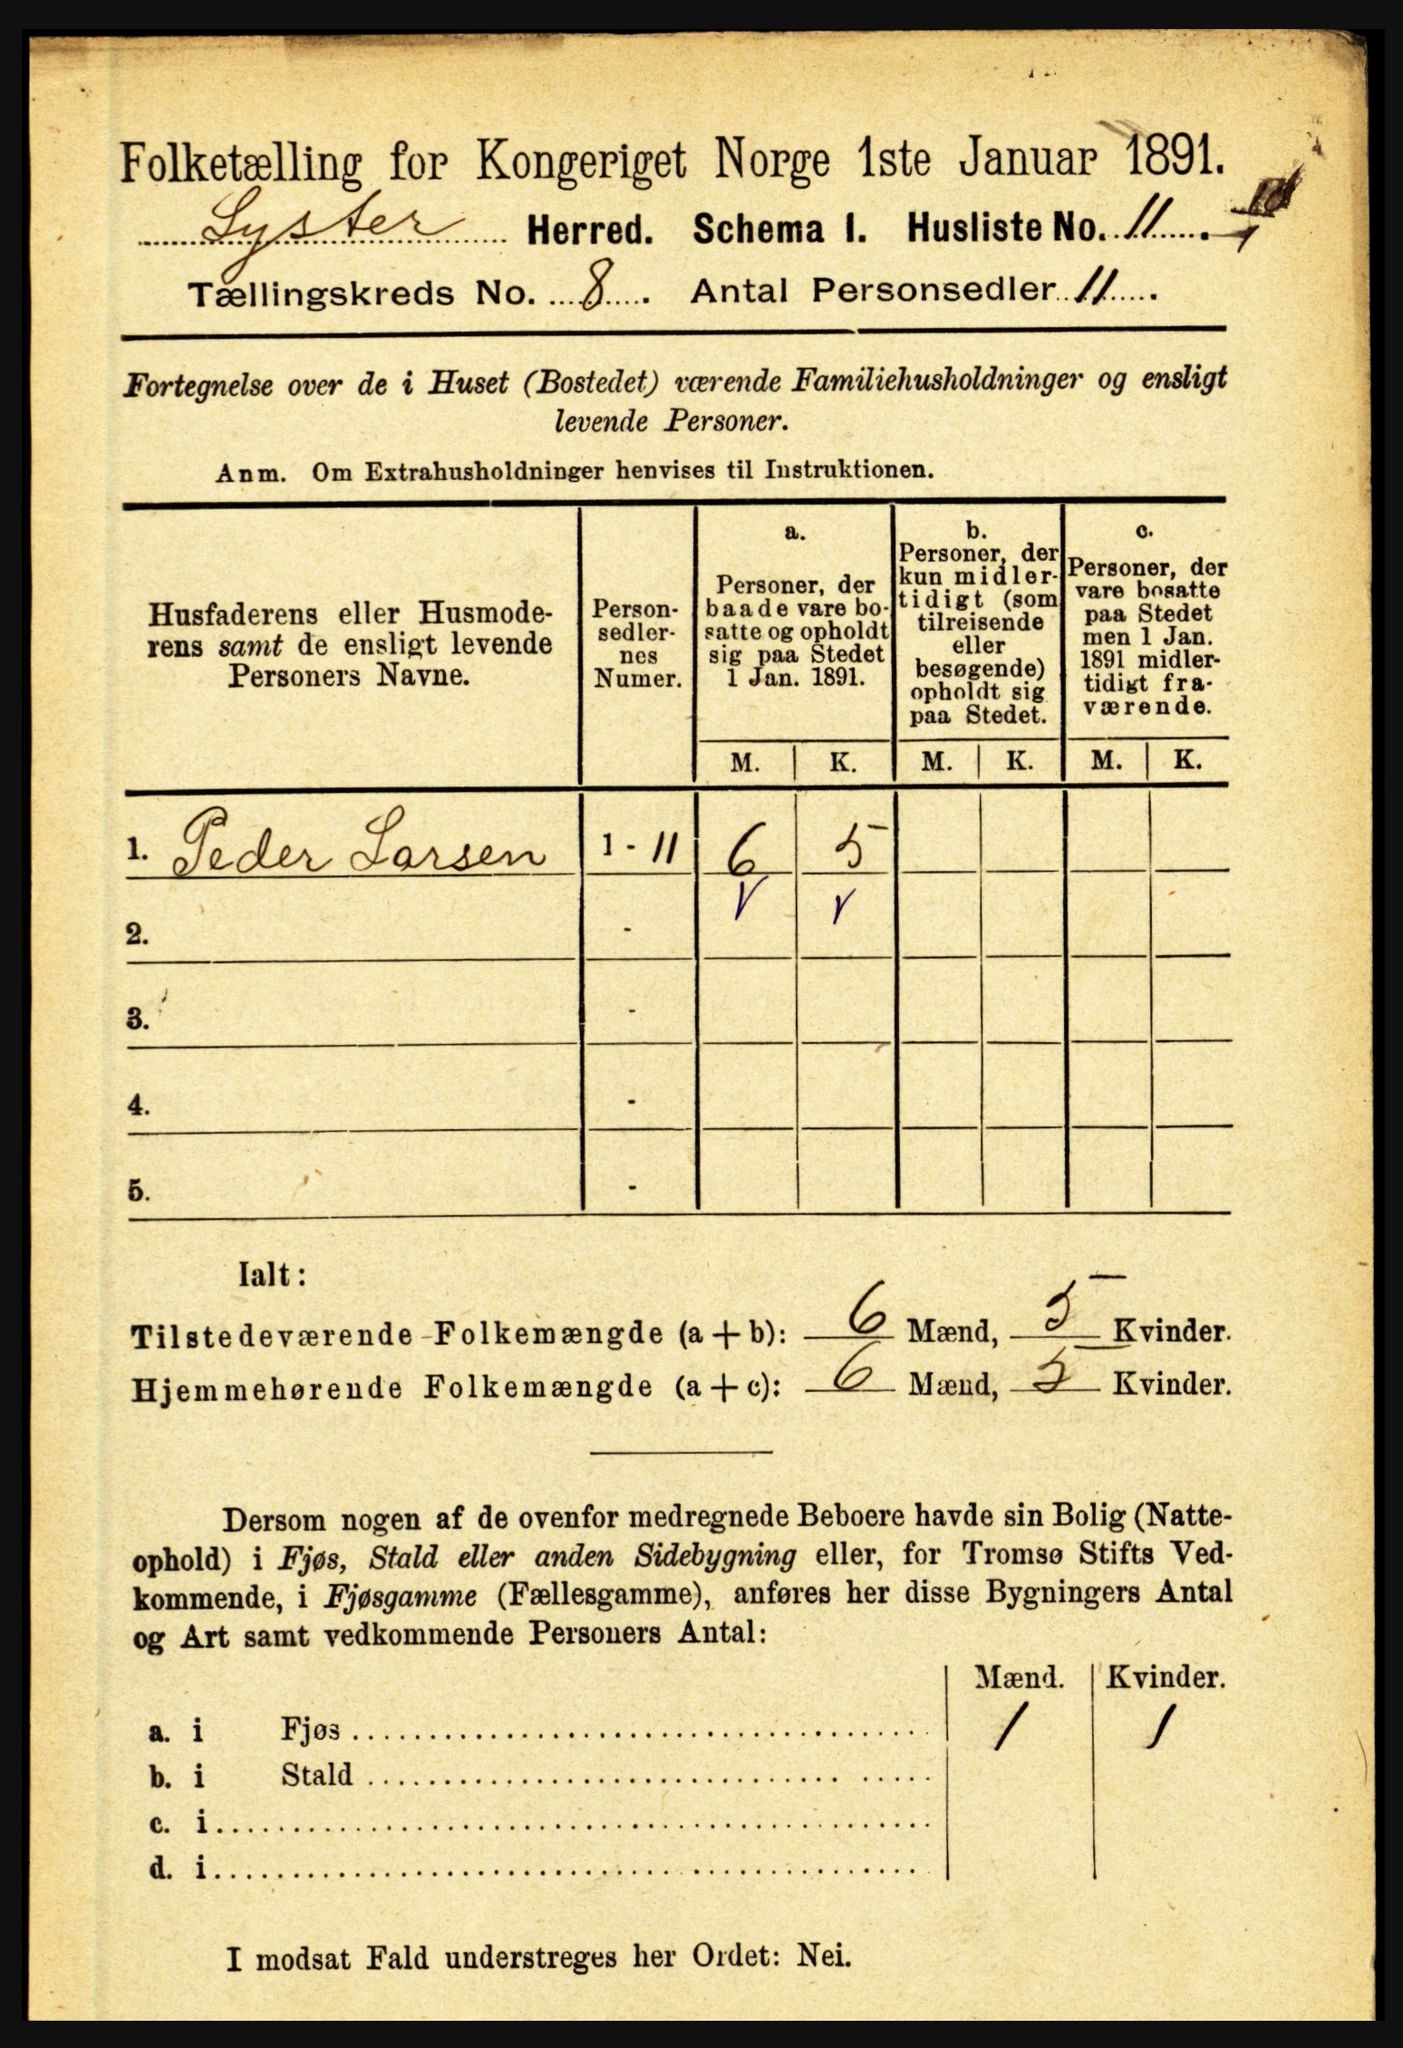 Folketælling for Kongeriget Norge 1ste Januar 1891.
Lyster Herred. Schema I. Husliste No. 11.
Tællingskreds No. 8. Antal Personsedler 11.
Fortegnelse over de i Huset (Bostedet) værende Familiehusholdninger og ensligt
levende Personer.
Anm. Om Extrahusholdninger henvises til Instruktionen.
Husfaderens eller Husmode-
rens samt de ensligt levende
Personers Navne.
Person-
sedler-
nes
Numer.
a.
Personer, der
baade vare bo-
satte og opholdt
sig paa Stedet
1 Jan. 1891.
b.
Personer, der
kun midler-
tidigt (som
tilreisende
eller
besøgende)
opholdt sig
paa Stedet.
c.
Personer, der
vare bosatte
paa Stedet
men 1 Jan.
1891 midler-
tidigt fra-
værende.
M. K. M. K. M. K.
1. Peder Larsen 1 - 11 6 5
2. -
3. -
4. -
5. -
Ialt:
Tilstedeværende Folkemængde (a + b): 6 Mænd, 5 Kvinder.
Hjemmehørende Folkemængde (a + c): 6 Mænd, 5 Kvinder.
Dersom nogen af de ovenfor medregnede Beboere havde sin Bolig (Natte-
ophold) i Fjøs, Stald eller anden Sidebygning eller, for Tromsø Stifts Ved-
kommende, i Fjøsgamme (Fællesgamme), anføres her disse Bygningers Antal
og Art samt vedkommende Personers Antal:
Mænd. Kvinder.
a. i Fjøs 1 1
b. i Stald
c. i
d. i
I modsat Fald understreges her Ordet: Nei.